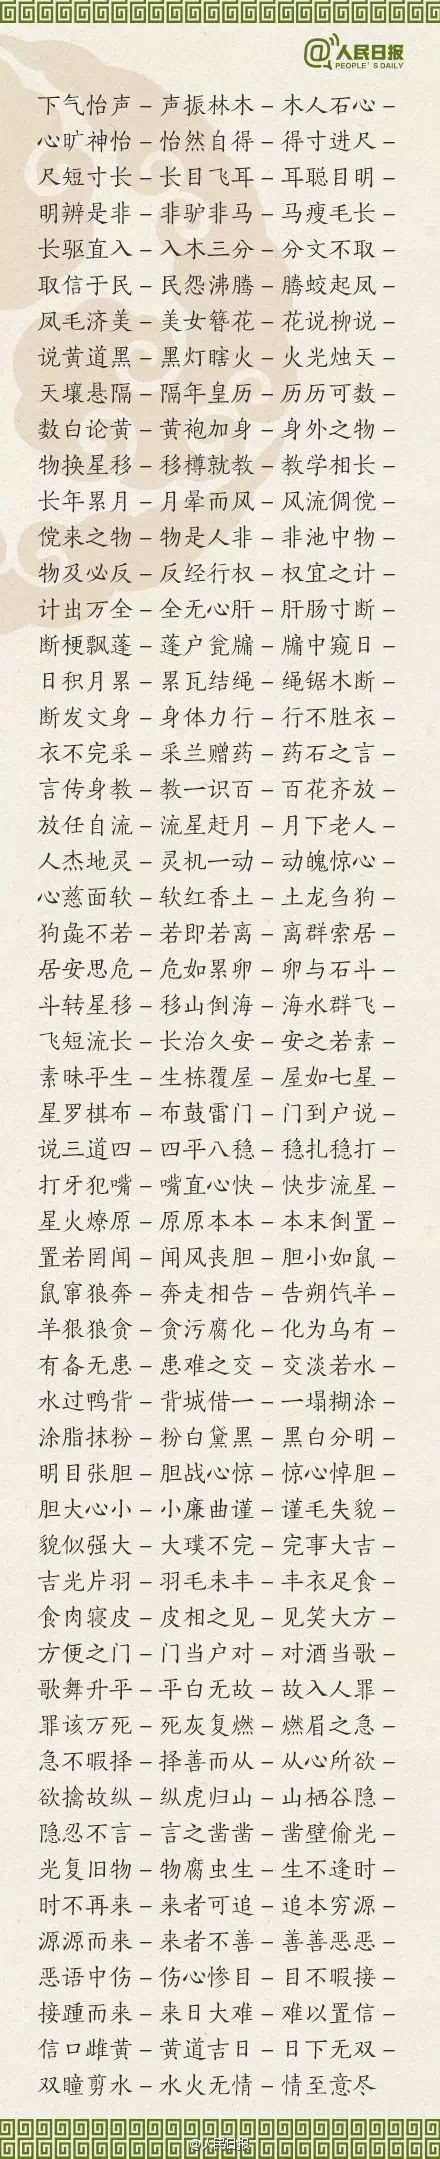 @人民日报
PEOPLE'S DAILY
下气怡声–声振林木–木人石心–
心旷神怡–怡然自得–得寸进尺–
尺短寸长–长目飞耳–耳聪目明–
明辨是非–非驴非马–马瘦毛长–
长驱直入–入木三分–分文不取–
取信于民–民怨沸腾–腾蛟起凤–
凤毛济美–美女簪花–花说柳说–
说黄道黑–黑灯瞎火–火光烛天–
天壤悬隔–隔年皇历–历历可数–
数白论黄–黄袍加身–身外之物–
物换星移–移樽就教–教学相长–
长年累月–月晕而风–风流倜傥–
傥来之物–物是人非–非池中物–
物及必反–反经行权–权宜之计–
计出万全–全无心肝–肝肠寸断–
断梗飘蓬–蓬户瓮牖–牖中窥日–
日积月累–累瓦结绳–绳锯木断–
断发文身–身体力行–行不胜衣–
衣不完采–采兰赠药–药石之言–
言传身教–教一识百–百花齐放–
放任自流–流星赶月–月下老人–
人杰地灵–灵机一动–动魄惊心–
心慈面软–软红香土–土龙刍狗–
狗彘不若–若即若离–离群索居–
居安思危–危如累卵–卵与石斗–
斗转星移–移山倒海–海水群飞–
飞短流长–长治久安–安之若素–
素昧平生–生栋覆屋–屋如七星–
星罗棋布–布鼓雷门–门到户说–
说三道四–四平八稳–稳扎稳打–
打牙犯嘴–嘴直心快–快步流星–
星火燎原–原原本本–本末倒置–
置若罔闻–闻风丧胆–胆小如鼠–
鼠窜狼奔–奔走相告–告朔饩羊–
羊狠狼贪–贪污腐化–化为乌有–
有备无患–患难之交–交淡若水–
水过鸭背–背城借一–一塌糊涂–
涂脂抹粉–粉白黛黑–黑白分明–
明目张胆–胆战心惊–惊心悼胆–
胆大心小–小廉曲谨–谨毛失貌–
貌似强大–大璞不完–完事大吉–
吉光片羽–羽毛未丰–丰衣足食–
食肉寝皮–皮相之见–见笑大方–
方便之门–门当户对–对酒当歌–
歌舞升平–平白无故–故入人罪–
罪该万死–死灰复燃–燃眉之急–
急不暇择–择善而从–从心所欲–
欲擒故纵–纵虎归山–山栖谷隐–
隐忍不言–言之凿凿–凿壁偷光–
光复旧物–物腐虫生–生不逢时–
时不再来–来者可追–追本穷源–
源源而来–来者不善–善善恶恶–
恶语中伤–伤心惨目–目不暇接–
接踵而来–来日大难–难以置信–
信口雌黄–黄道吉日–日下无双–
双瞳剪水–水火无情–情至意尽
@人民日报